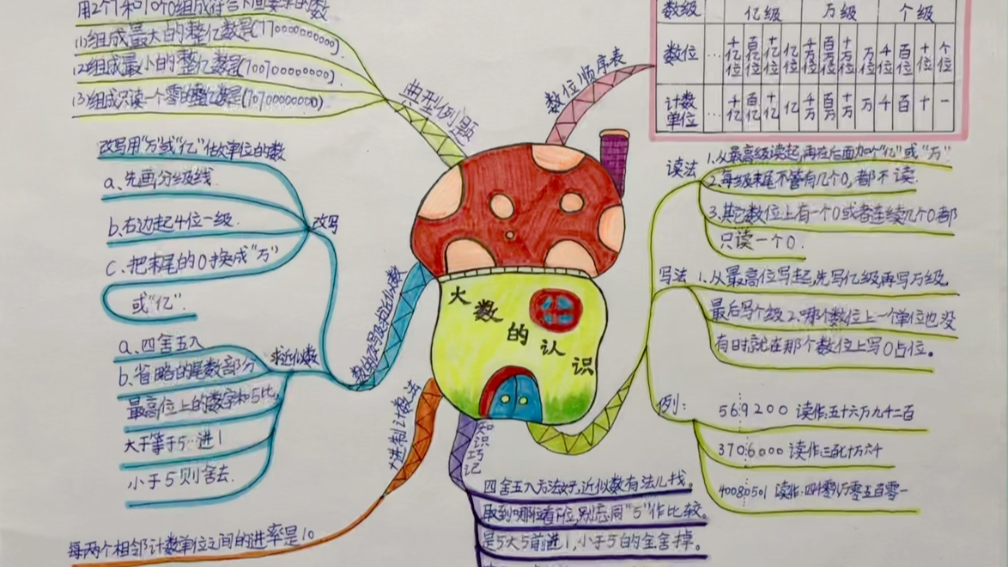 用2个1和10个0组成符合下面要求的数
(1)组成最大的整亿数是(1100000000)
(2)组成最小的整亿数是(100100000000)
(3)组成只读一个零的整亿数是(10100000000)
典型例题
数位顺序表
数级 亿级 万级 个级
数位 … 千亿位 百亿位 十亿位 亿位 千万位 百万位 十万位 万位 千位 百位 十位 个位
计数单位 … 千亿 百亿 十亿 亿 千万 百万 十万 万 千 百 十 一
改写用"万"或"亿"作单位的数
a、先画分级线
b、右边起4位一级
c、把末尾的0换成"万"
或"亿".
改写
a、四舍五入
b、省略的尾数部分
最高位上的数字和5比,
大于等于5…进1
小于5则舍去.
求近似数
数的改写与求近似数
十进制计数法
每两个相邻计数单位之间的进率是10
大数的认识
知识巧记
四舍五入方法好,近似数有法儿找。
取到哪位看下位,别忘同"5"作比较。
是5大5前进1,小于5的全舍掉。
读法
1.从最高级读起,再在后面加个"亿"或"万"
2、每级末尾不管有几个0,都不读.
3、其它数位上有一个0或者连续几个0都
只读一个0.
写法 1、从最高位写起,先写亿级再写万级,
最后写个级 2、哪个数位上一个单位也没
有时就在那个数位上写0占位。
例:
569200 读作:五十六万九千二百
3706000 读作:三百七十万六千
40080501 读作:四千零八万零五百零一